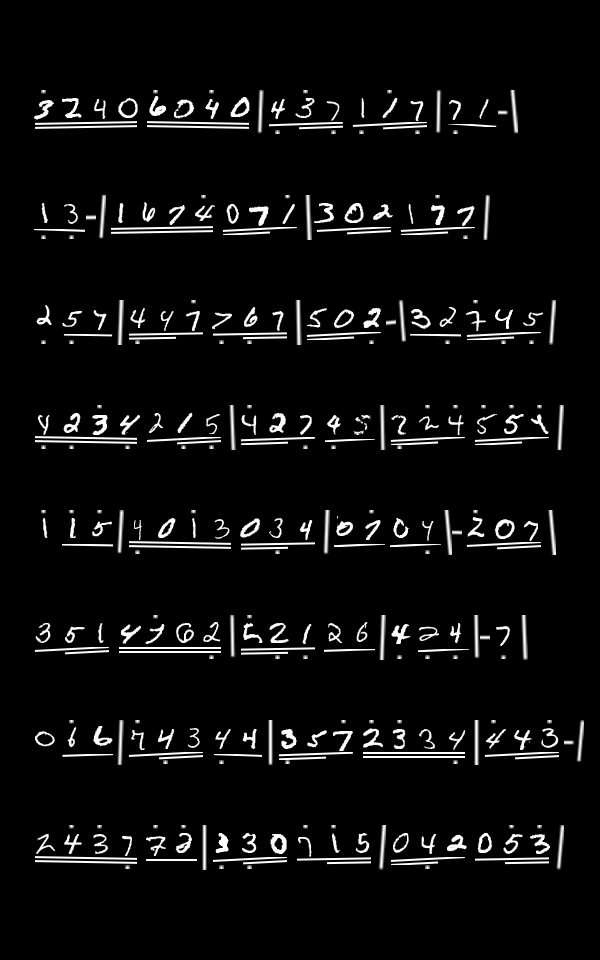 3240 6040 | 437 117 | 71 - |
13 - | 1674 071 | 302 177 |
257 | 447 767 | 502 - | 32745
4234 215 | 427 45 | 224 554 |
115 | 4013 034 | 07 04 | - 207 |
351 4762 | 521 26 | 424 | - 7 |
016 | 743 44 | 357 2334 | 443 - |
2437 72 | 330 715 | 042 053 |